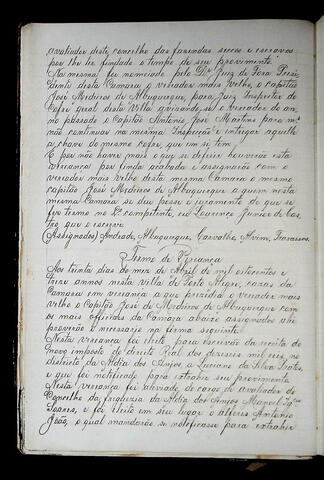 avaliador deste concelho das fazendas seccas e escravos
por lhe ter findado o tempo de seu provimento.
Na mesma foi nomeado pelo Dr. Juiz de Fora Presi-
dente desta Camara o vereador mais velho, o capitão
José Medeiros de Albuquerque para Juiz Inspector do
Cofre geral desta Villa avisando-se o vereador do an-
no passado o Capitão Antonio José Martins para
não continuar na mesma Inspecção e intregar aquelle
a chave do mesmo cofre, que em si tem.
E por não haver mais que se deferir houverão esta
Vereança por finda acabada e assignarão com o
vereador mais velho desta mesma Camara o mesmo
capitão José Medeiros de Albuquerque a quem nesta
mesma Camara se deu posse e juramento do que se
fez termo no Lo. competente, eu Lourenço Junior de Cas-
tro que o escrevi
(Assignados) Andrade, Albuquerque, Carvalho, Alvim,
Termo de Vereança
Aos trinta dias do mez de Abril de mil oitocentos e
treze annos nesta villa de Porto Alegre, cazas da
Camara em vereança a que prezidia o vereador mais
velho o Capitão José de Medeiros de Albuquerque com
os mais officiaes da Camara abaixo assignados ahi
proverão o necessario na forma seguinte
Nesta vereança foi eleito para escrivão da receita do
novo imposto do direito Real dos dezeseis mil reis, no
districto da Aldia dos Anjos a Luciano da Silva
e que foi notificado para extrahir seu provimento.
Nesta vereança foi aleviado do cargo de avaliador do
Concelho da freguezia da Aldia dos Anjos Manoel
Soares, e foi eleito em seu lugar o alferes Antonio
João, o qual mandarão se notificasse para extrahir